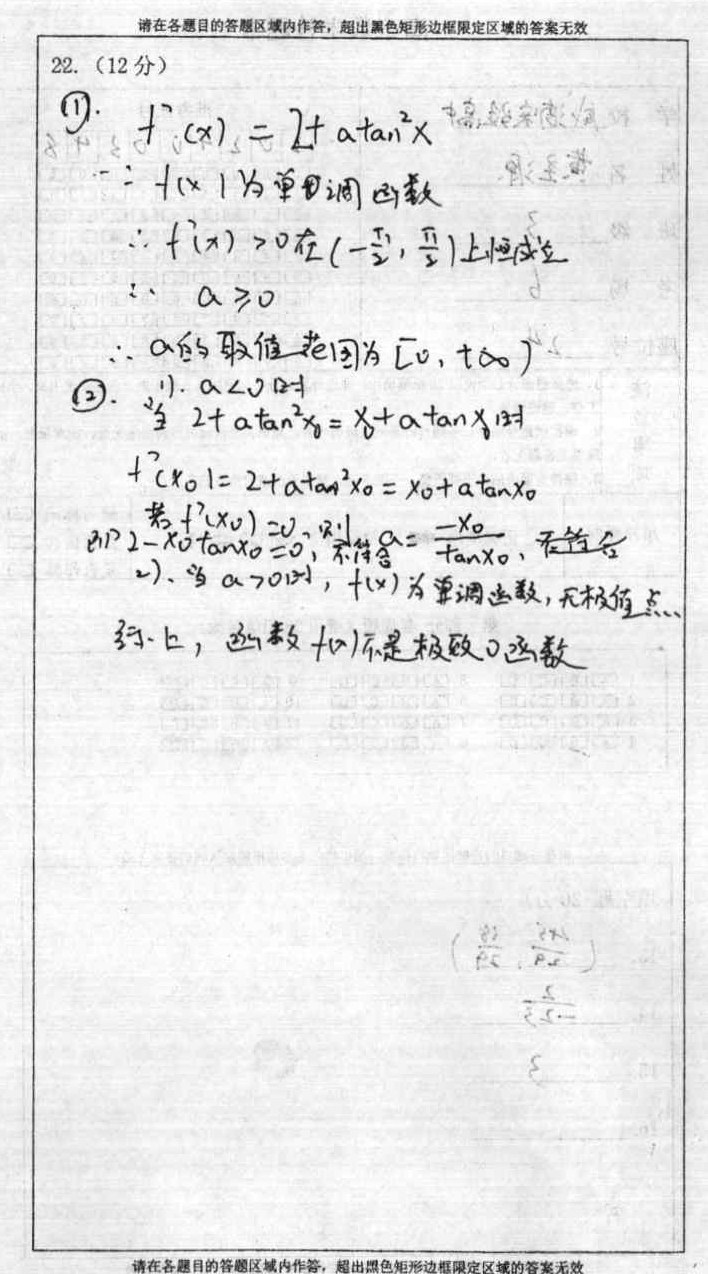 请在各题目的答题区域内作答，超出黑色矩形边框限定区域的答案无效
22.（12分）
①. f'(x) = 2+atan²x
∵ f(x)为单调函数
∴ f'(x)>0在(-π/2, π/2)上恒成立
∴ a≥0
∴ a的取值范围为[0,+∞)
②. 1). a<0时
当 2+atan²x₀=x₀+atanx₀时
f'(x₀)=2+atan²x₀=x₀+atanx₀
若f'(x₀)=0, 则 a=-x₀/tanx₀,
即2-x₀tanx₀=0, 不符合
2). 当a>0时, f(x)为单调函数, 无极值点.
综上, 函数f(x)不是极致0函数
请在各题目的答题区域内作答，超出黑色矩形边框限定区域的答案无效